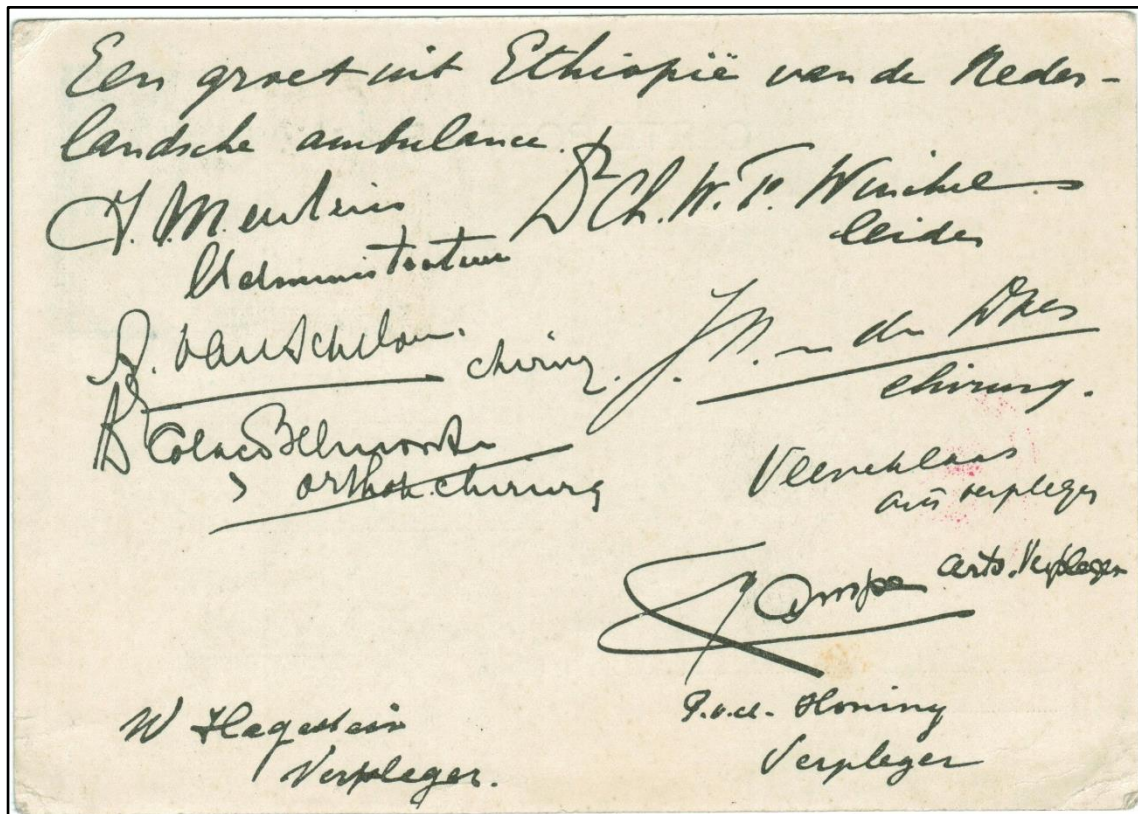 Een groet uit Ethiopië van de Neder-
landsche ambulance.
Dr Ch. W. F. Winckel
leider
J. Meulein
Administrateur
A. van Schelven
chirurg.
J. N. v. der Does
chirurg.
Dr Colaço Belmonte
orthop. chirurg
Veeneklaas
arts verpleger
arts. Verpleger
W Hagestein
Verpleger.
P. v. d. Honing
Verpleger